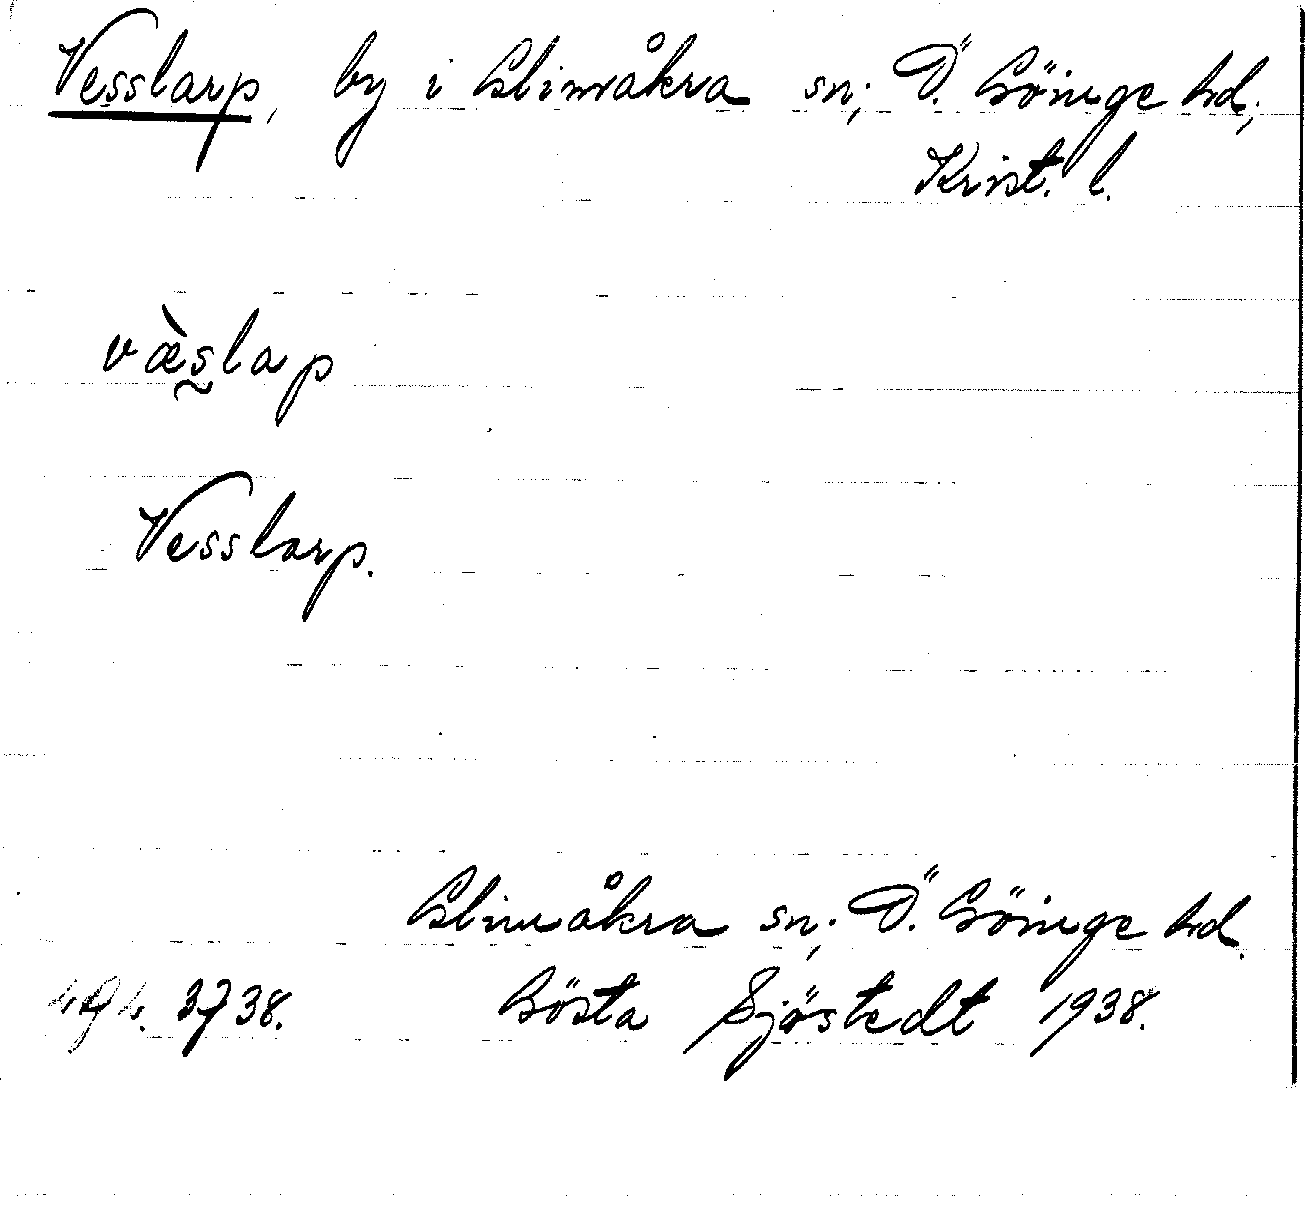 Vesslarp, by i Glimåkra sn; Ö. Göinge hd,
Krist. l.
væ̀s̰lap
Vesslarp.
Glimåkra sn; Ö. Göinge hd.
3738. Gösta Sjöstedt 1938.